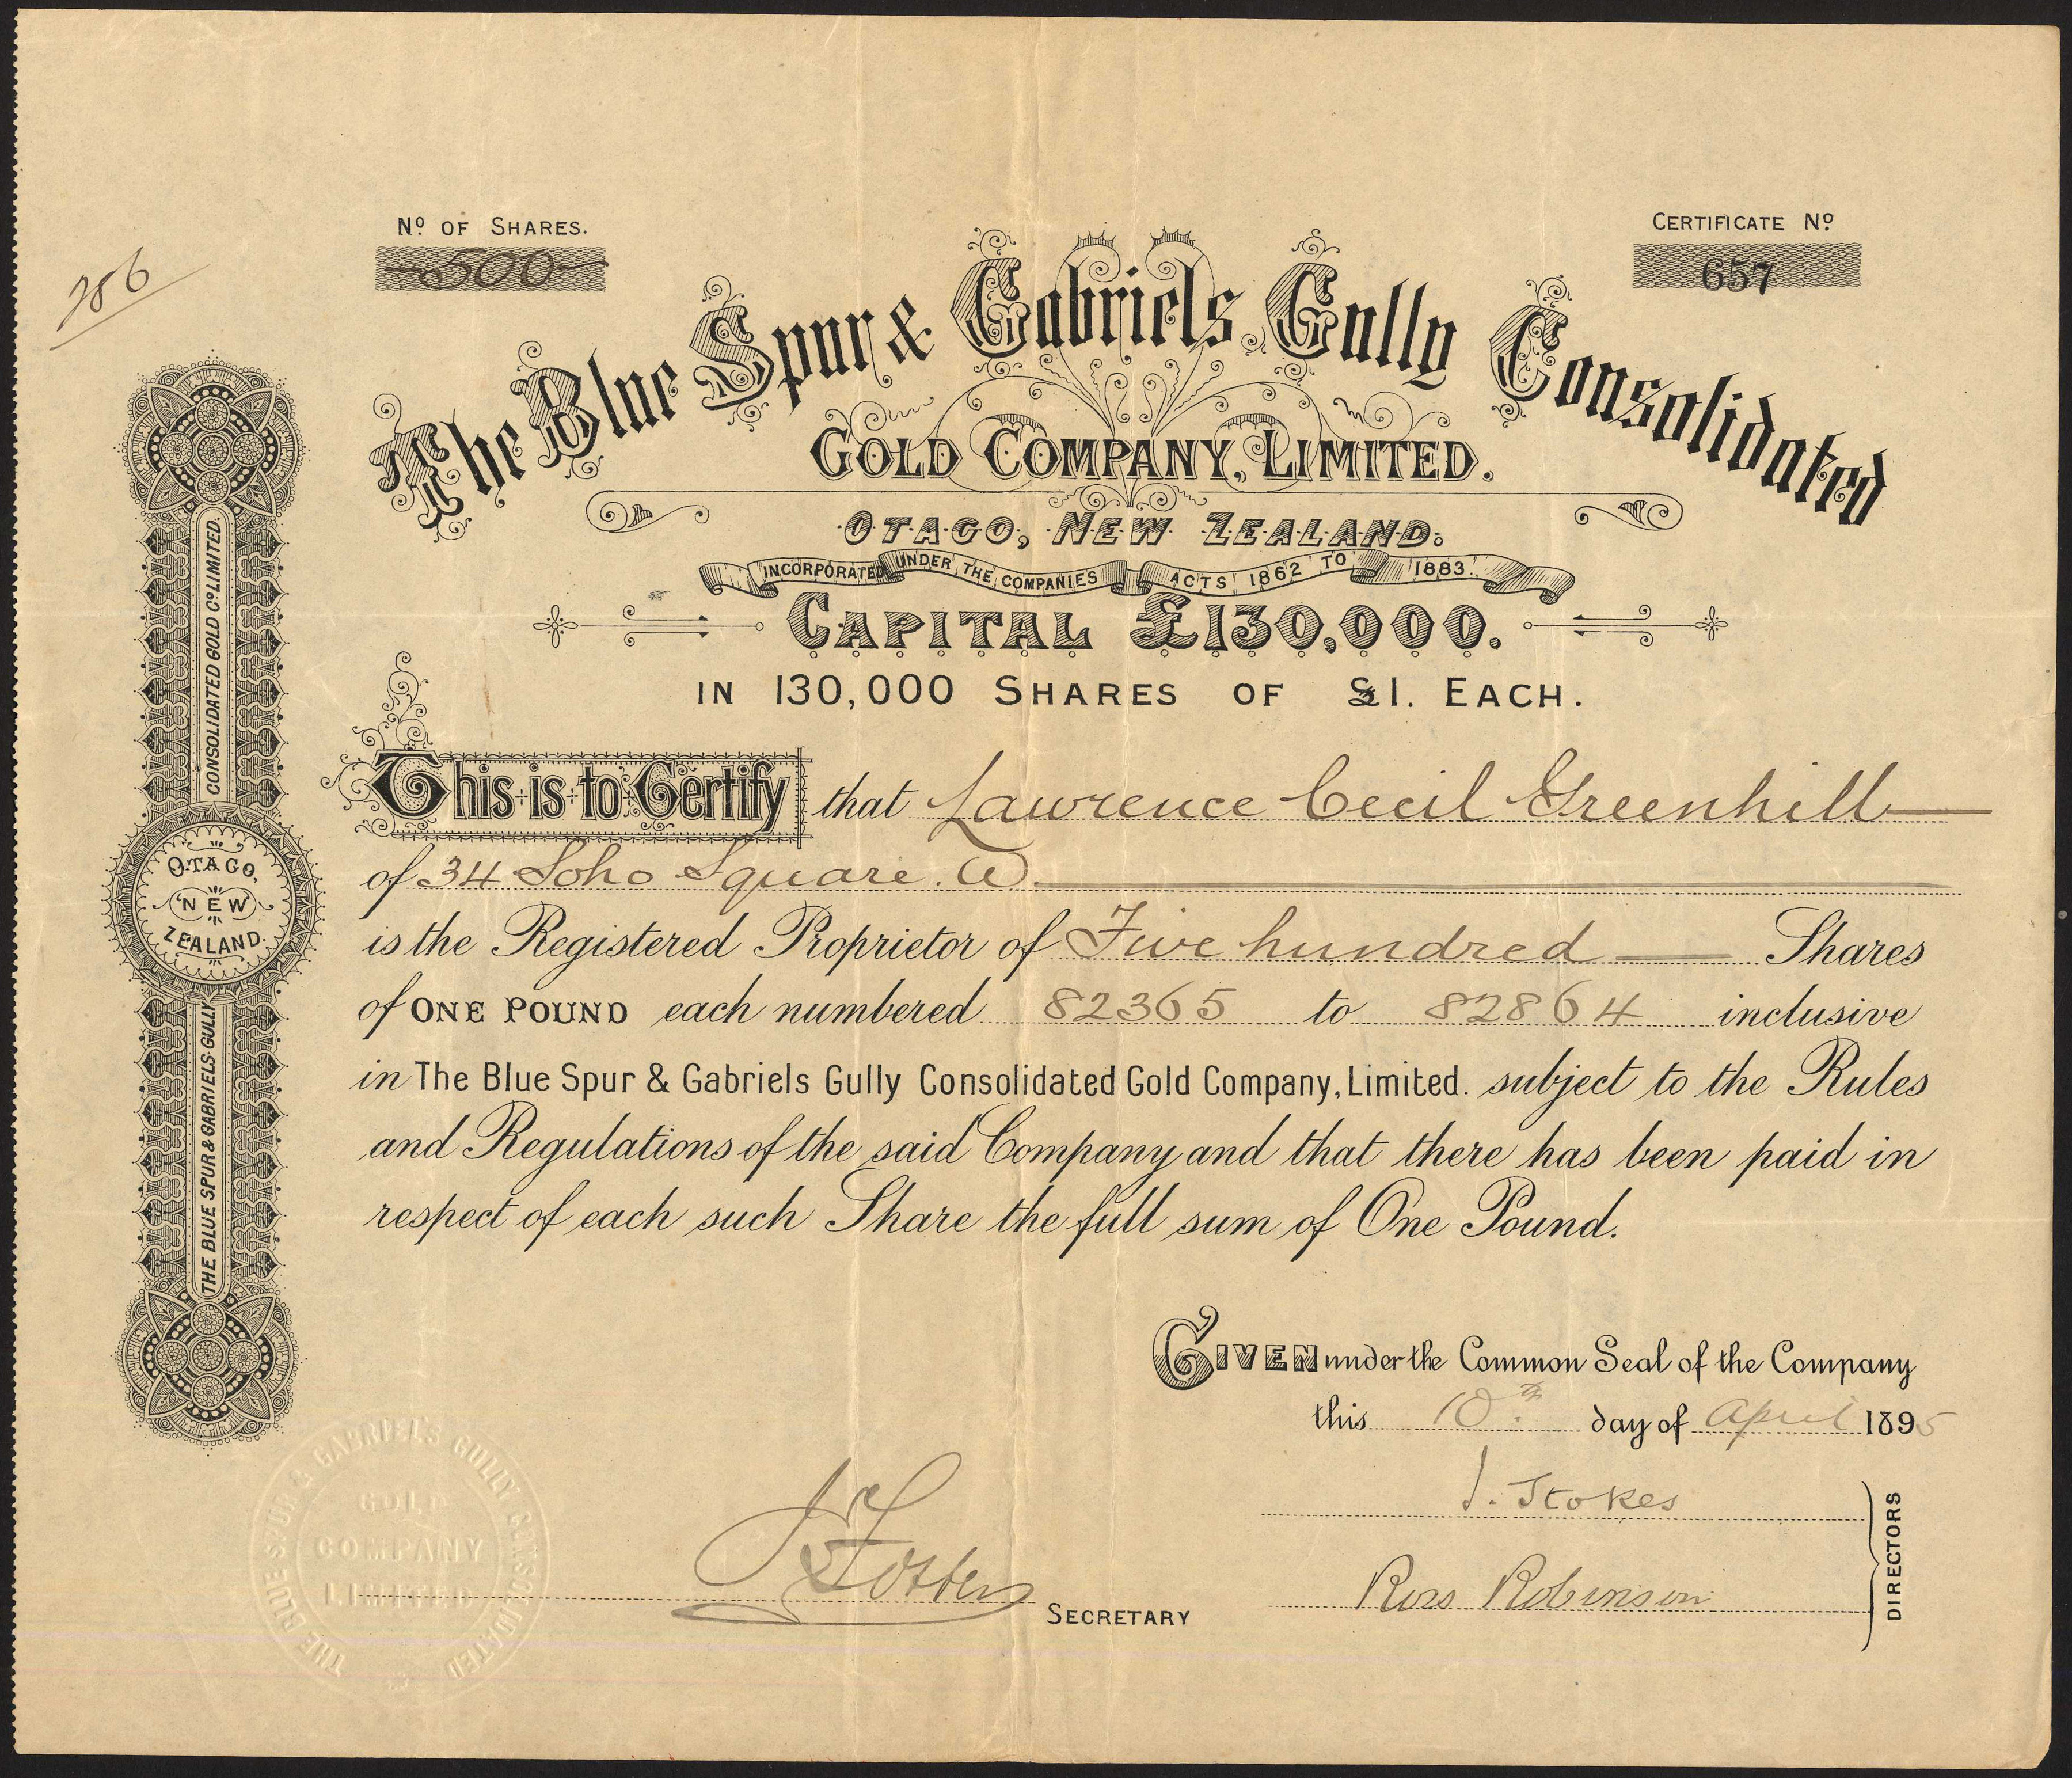 No OF SHARES.
500
CERTIFICATE No
657
The Blue Spur & Gabriels Gully Consolidated
GOLD COMPANY, LIMITED.
OTAGO, NEW ZEALAND.
INCORPORATED UNDER THE COMPANIES ACTS 1862 TO 1883.
CAPITAL £130,000.
IN 130,000 SHARES OF £1. EACH.
This is to Certify that Lawrence Cecil Greenhill
of 34 Soho Square. W.
is the Registered Proprietor of Five hundred Shares
of ONE POUND each numbered 82365 to 82864 inclusive
in The Blue Spur & Gabriels Gully Consolidated Gold Company, Limited. subject to the Rules
and Regulations of the said Company and that there has been paid in
respect of each such Share the full sum of One Pound.
GIVEN under the Common Seal of the Company
this 10th day of April 1895
J. Stokes
Ross Robinson
DIRECTORS
J Foster
SECRETARY
THE BLUE SPUR & GABRIELS GULLY
OTAGO,
NEW
ZEALAND.
CONSOLIDATED GOLD Co LIMITED.
THE BLUE SPUR & GABRIEL'S GULLY CONSOLIDATED
GOLD
COMPANY
LIMITED